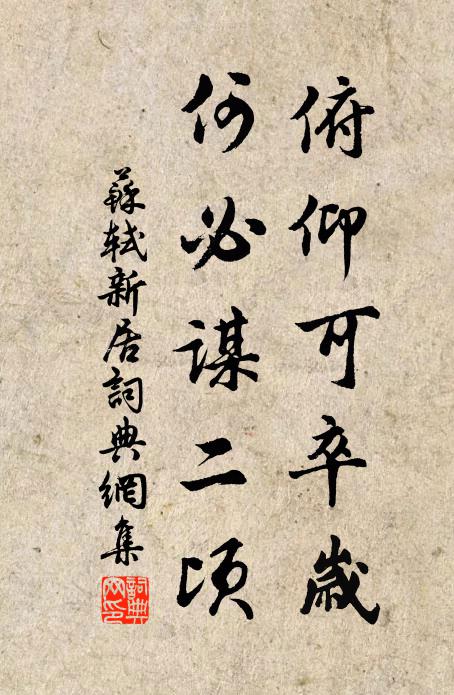 俯仰可卒歲
何必謀二頃
蘇軾新居詞典網集
詞典
網印